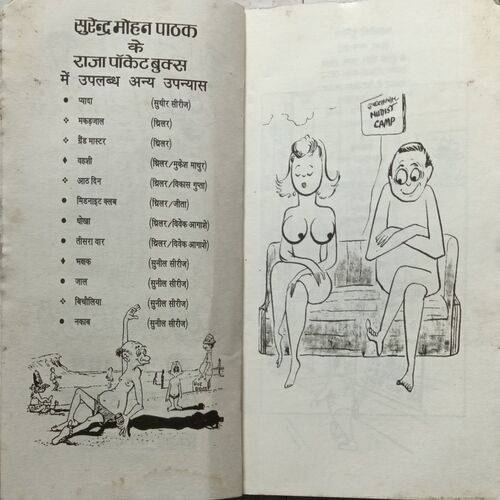 सुरेन्द्र मोहन पाठक
के
राजा पॉकेट बुक्स
में उपलब्ध अन्य उपन्यास
● प्यादा (सुधीर सीरीज)
❖ मकड़जाल (थ्रिलर)
❖ ग्रैंड मास्टर (थ्रिलर)
♦ वहशी (थ्रिलर/मुकेश माथुर)
❖ आठ दिन (थ्रिलर/विकास गुप्ता)
● मिडनाइट क्लब (थ्रिलर/जीता)
● धोखा (थ्रिलर/विवेक आगाशे)
● तीसरा वार (थ्रिलर/विवेक आगाशे)
♦ भक्षक (सुनील सीरीज)
● जाल (सुनील सीरीज)
❖ बिचौलिया (सुनील सीरीज)
● नकाब (सुनील सीरीज)
NUDIST
CAMP